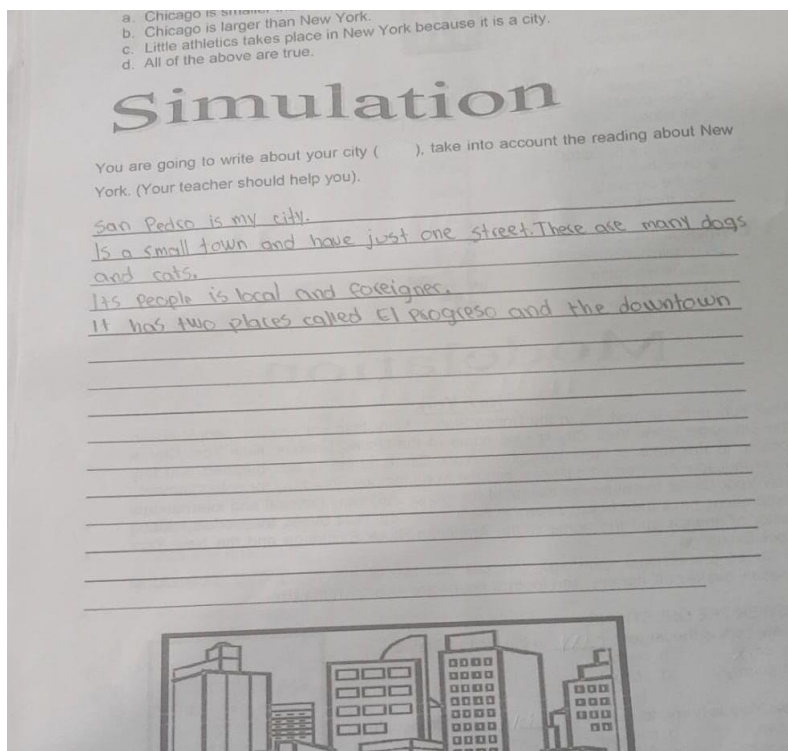 a. Chicago is
b. Chicago is larger than New York.
c. Little athletics takes place in New York because it is a city.
d. All of the above are true.
Simulation
You are going to write about your city (      ), take into account the reading about New
York. (Your teacher should help you).
San Pedro is my city.
Is a small town and have just one street. There are many dogs
and cats.
Its people is local and foreigner.
It has two places called El Progreso and the downtown